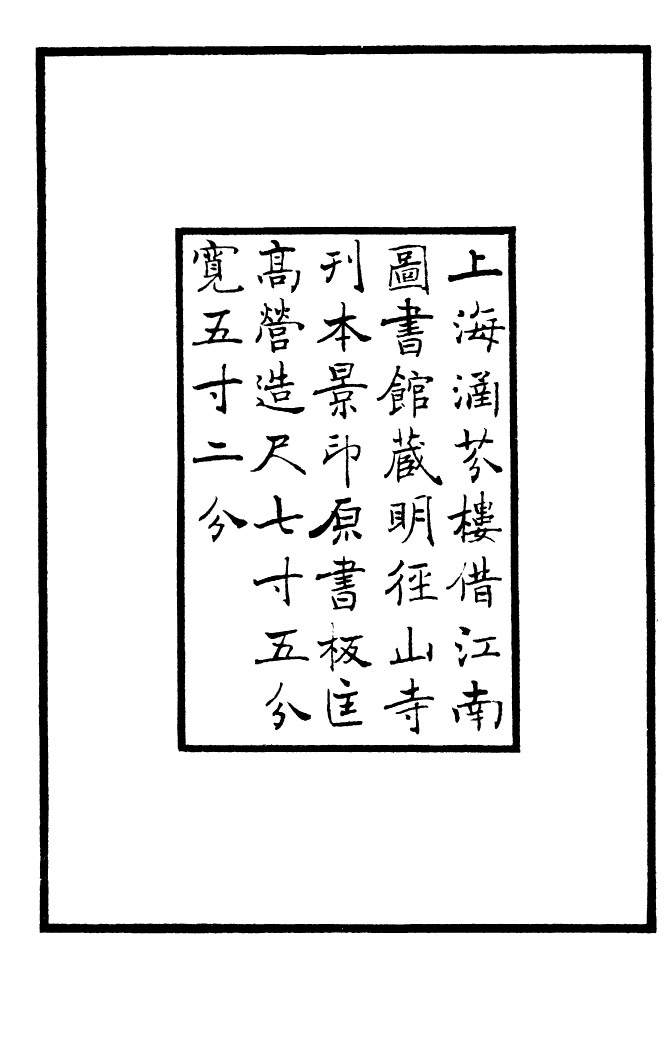 上海涵芬樓借江南
圖書館藏明徑山寺
刊本景印原書板匡
高營造尺七寸五分
寬五寸二分